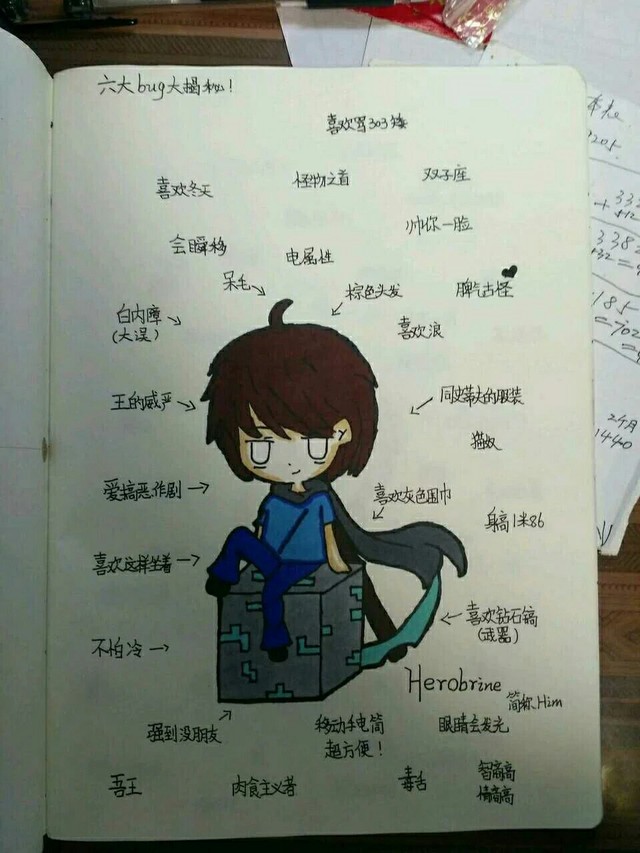 六大bug大揭秘!
喜欢骂303矮
喜欢冬天
怪物之首
双子座
帅你一脸
会瞬移
电属性
呆毛
棕色头发
脾气古怪
白内障
(大误)
喜欢浪
王的威严
同史蒂夫的服装
猫奴
爱搞恶作剧
喜欢灰色围巾
身高1米86
喜欢这样坐着
喜欢钻石镐
(武器)
不怕冷
Herobrine
简称Him
强到没朋友
移动手电筒
超方便!
眼睛会发光
吾王
肉食主义者
毒舌
智商高
情商高
本表
1205.
1185
2个月
1440